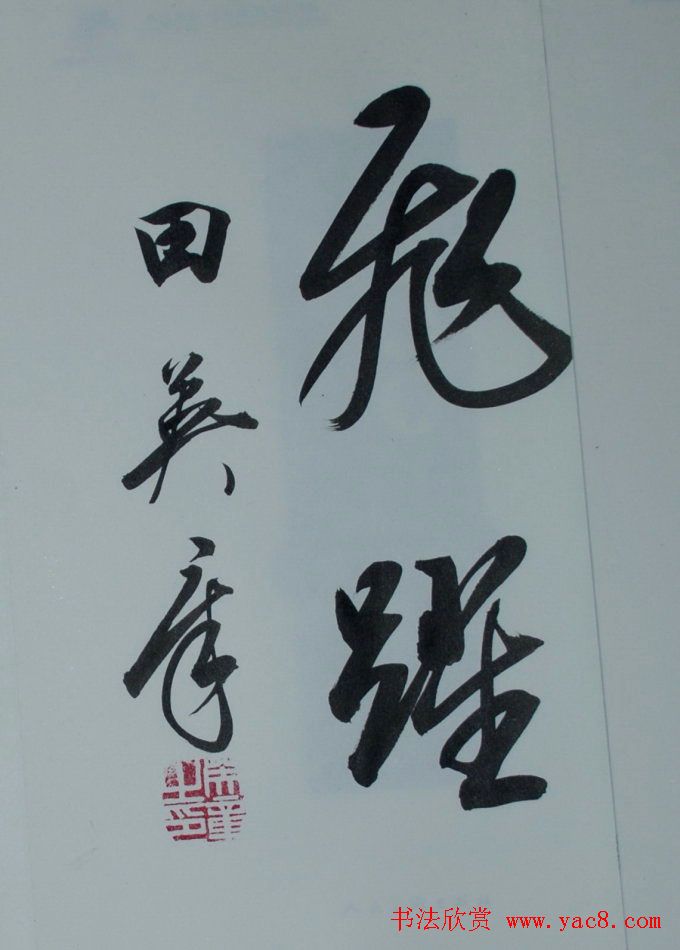 飛躍
田英章
书法欣赏 www.yac8.com